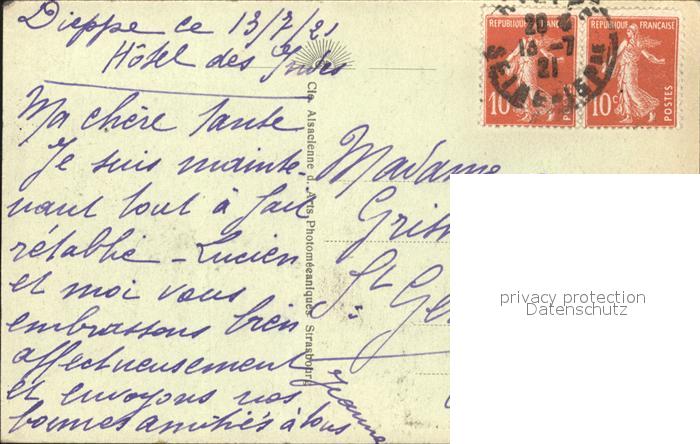 Dieppe ce 13/7/21
Hôtel des Indes
Ma chère tante
Je suis mainte-
nant tout à fait
rétablie - Lucien
et moi vous
embrassons bien
affectueusement
et envoyons nos
bonnes amitiés à tous
Jeanne
Cie Alsacienne d. Arts Photomécaniques Strasbourg
REPUBLIQUE FRANÇAISE
10c
POSTES
REPUBLIQUE FRANÇAISE
10c
POSTES
20
13 -7
21
SEINE
Madame
St
privacy protection
Datenschutz